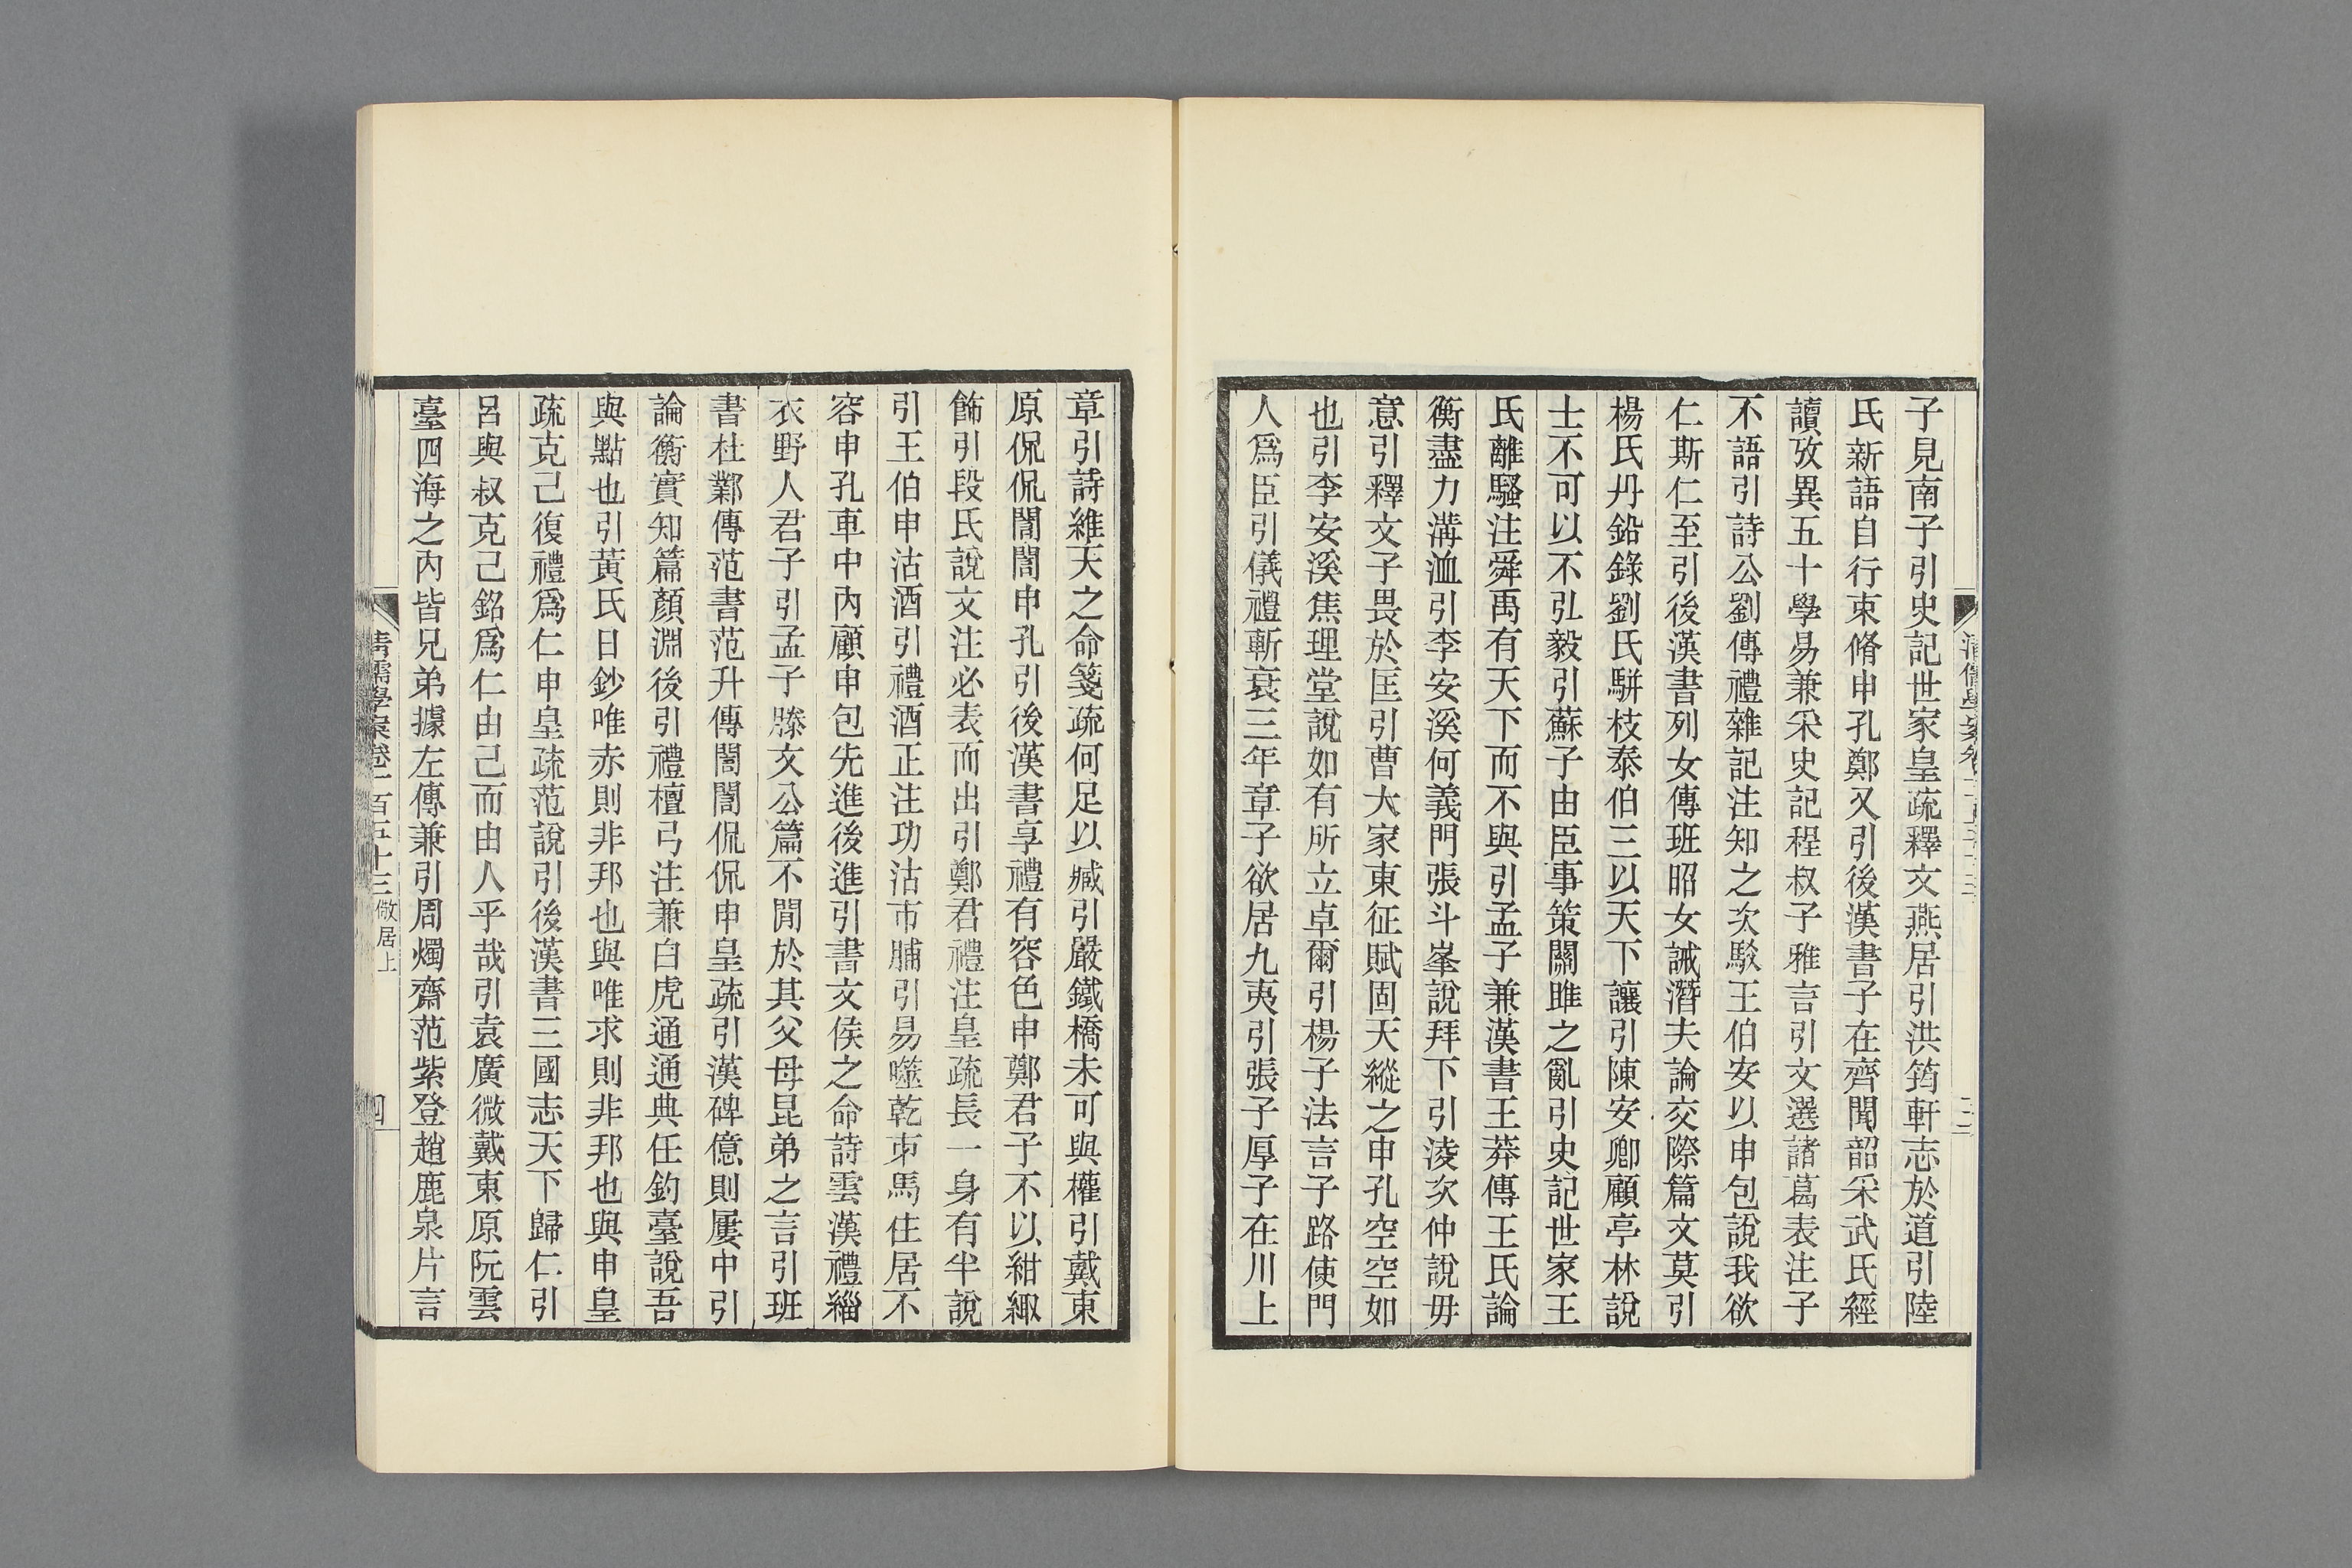 子見南子引史記世家皇疏釋文燕居引洪筠軒志於道引陸
氏新語自行束脩申孔鄭又引後漢書子在齊聞韶采武氏經
讀攷異五十學易兼采史記程叔子雅言引文選諸葛表注子
不語引詩公劉傳禮雜記注知之次駁王伯安以申包說我欲
仁斯仁至引後漢書列女傳班昭女誡潛夫論交際篇文莫引
楊氏丹鉛錄劉氏駢枝泰伯三以天下讓引陳安卿顧亭林說
士不可以不弘毅引蘇子由臣事策關雎之亂引史記世家王
氏離騷注舜禹有天下而不與引孟子兼漢書王莽傳王氏論
衡盡力溝洫引李安溪何義門張斗峯說拜下引淩次仲說毋
意引釋文子畏於匡引曹大家東征賦固天縱之申孔空空如
也引李安溪焦理堂說如有所立卓爾引楊子法言子路使門
人爲臣引儀禮斬衰三年章子欲居九夷引張子厚子在川上
章引詩維天之命箋疏何足以臧引嚴鐵橋未可與權引戴東
原侃侃誾誾申孔引後漢書享禮有容色申鄭君子不以紺緅
飾引段氏說文注必表而出引鄭君禮注皇疏長一身有半說
引王伯申沽酒引禮酒正注功沽市脯引易噬乾胏馬住居不
容申孔車中內顧申包先進後進引書文侯之命詩雲漢禮緇
衣野人君子引孟子滕文公篇不閒於其父母昆弟之言引班
書杜鄴傳范書范升傳誾誾侃侃申皇疏引漢碑億則屢中引
論衡實知篇顏淵後引禮檀弓注兼白虎通通典任釣臺說吾
與點也引黃氏日鈔唯赤則非邦也與唯求則非邦也與申皇
疏克己復禮爲仁申皇疏范說引後漢書三國志天下歸仁引
呂與叔克己銘爲仁由己而由人乎哉引袁廣微戴東原阮雲
臺四海之內皆兄弟據左傳兼引周燭齋范紫登趙鹿泉片言
清儒學案卷一百五十三 儆居上
四